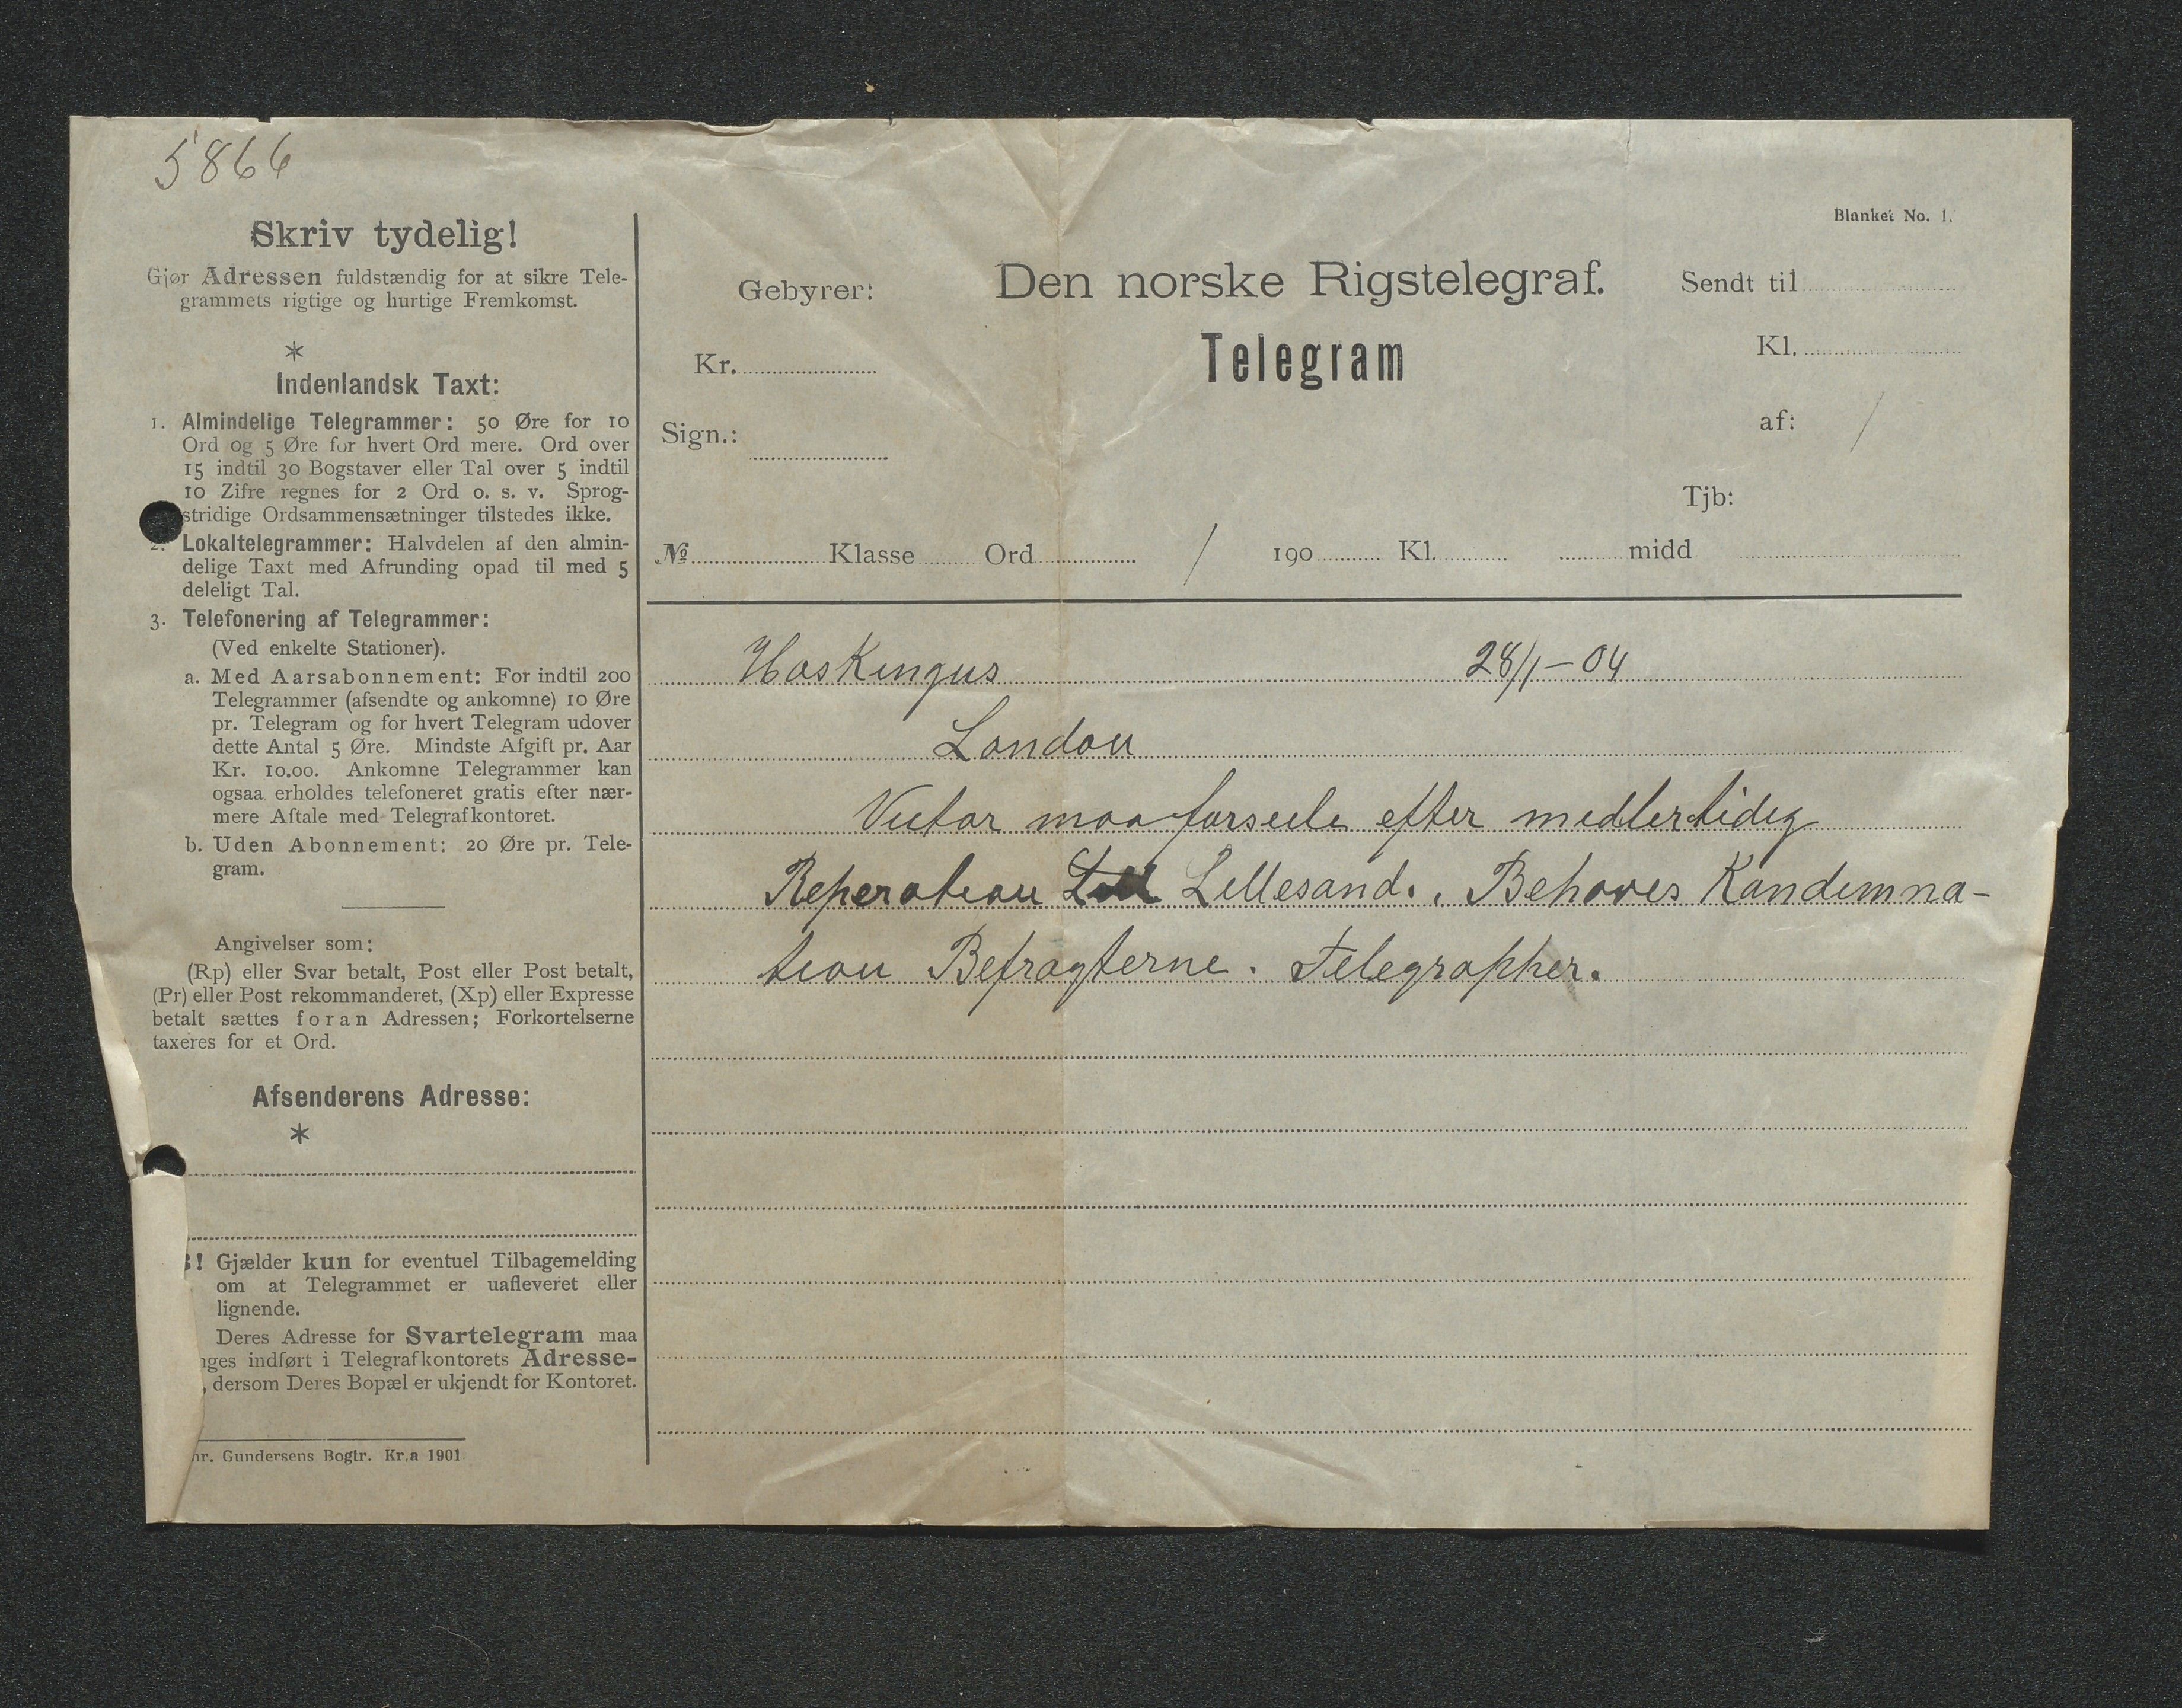 5866
Skriv tydelig!
Gjør Adressen fuldstændig for at sikre Tele-
grammets rigtige og hurtige Fremkomst.
*
Indenlandsk Taxt:
1. Almindelige Telegrammer: 50 Øre for 10
Ord og 5 Øre for hvert Ord mere. Ord over
15 indtil 30 Bogstaver eller Tal over 5 indtil
10 Zifre regnes for 2 Ord o. s. v. Sprog-
stridige Ordsammensætninger tilstedes ikke.
2. Lokaltelegrammer: Halvdelen af den almin-
delige Taxt med Afrunding opad til med 5
deleligt Tal.
3. Telefonering af Telegrammer:
(Ved enkelte Stationer).
a. Med Aarsabonnement: For indtil 200
Telegrammer (afsendte og ankomne) 10 Øre
pr. Telegram og for hvert Telegram udover
dette Antal 5 Øre. Mindste Afgift pr. Aar
Kr. 10.00. Ankomne Telegrammer kan
ogsaa erholdes telefoneret gratis efter nær-
mere Aftale med Telegrafkontoret.
b. Uden Abonnement: 20 Øre pr. Tele-
gram.
Angivelser som:
(Rp) eller Svar betalt, Post eller Post betalt,
(Pr) eller Post rekommanderet, (Xp) eller Expresse
betalt sættes foran Adressen; Forkortelserne
taxeres for et Ord.
Afsenderens Adresse:
*
! Gjælder kun for eventuel Tilbagemelding
om at Telegrammet er uafleveret eller
lignende.
Deres Adresse for Svartelegram maa
ges indført i Telegrafkontorets Adresse-
, dersom Deres Bopæl er ukjendt for Kontoret.
hr. Gundersens Bogtr. Kr.a 1901
Blanket No. 1.
Gebyrer: Den norske Rigstelegraf. Sendt til
Kr. Telegram Kl.
Sign.: af: /
Tjb:
№ Klasse Ord / 190 Kl. midd
Hoskingus 28/1-04
London
Victor maa forseile efter midlertidig
Reperation Lillesand. Behøves Kondemna-
tion Befragterne. Telegrapher.